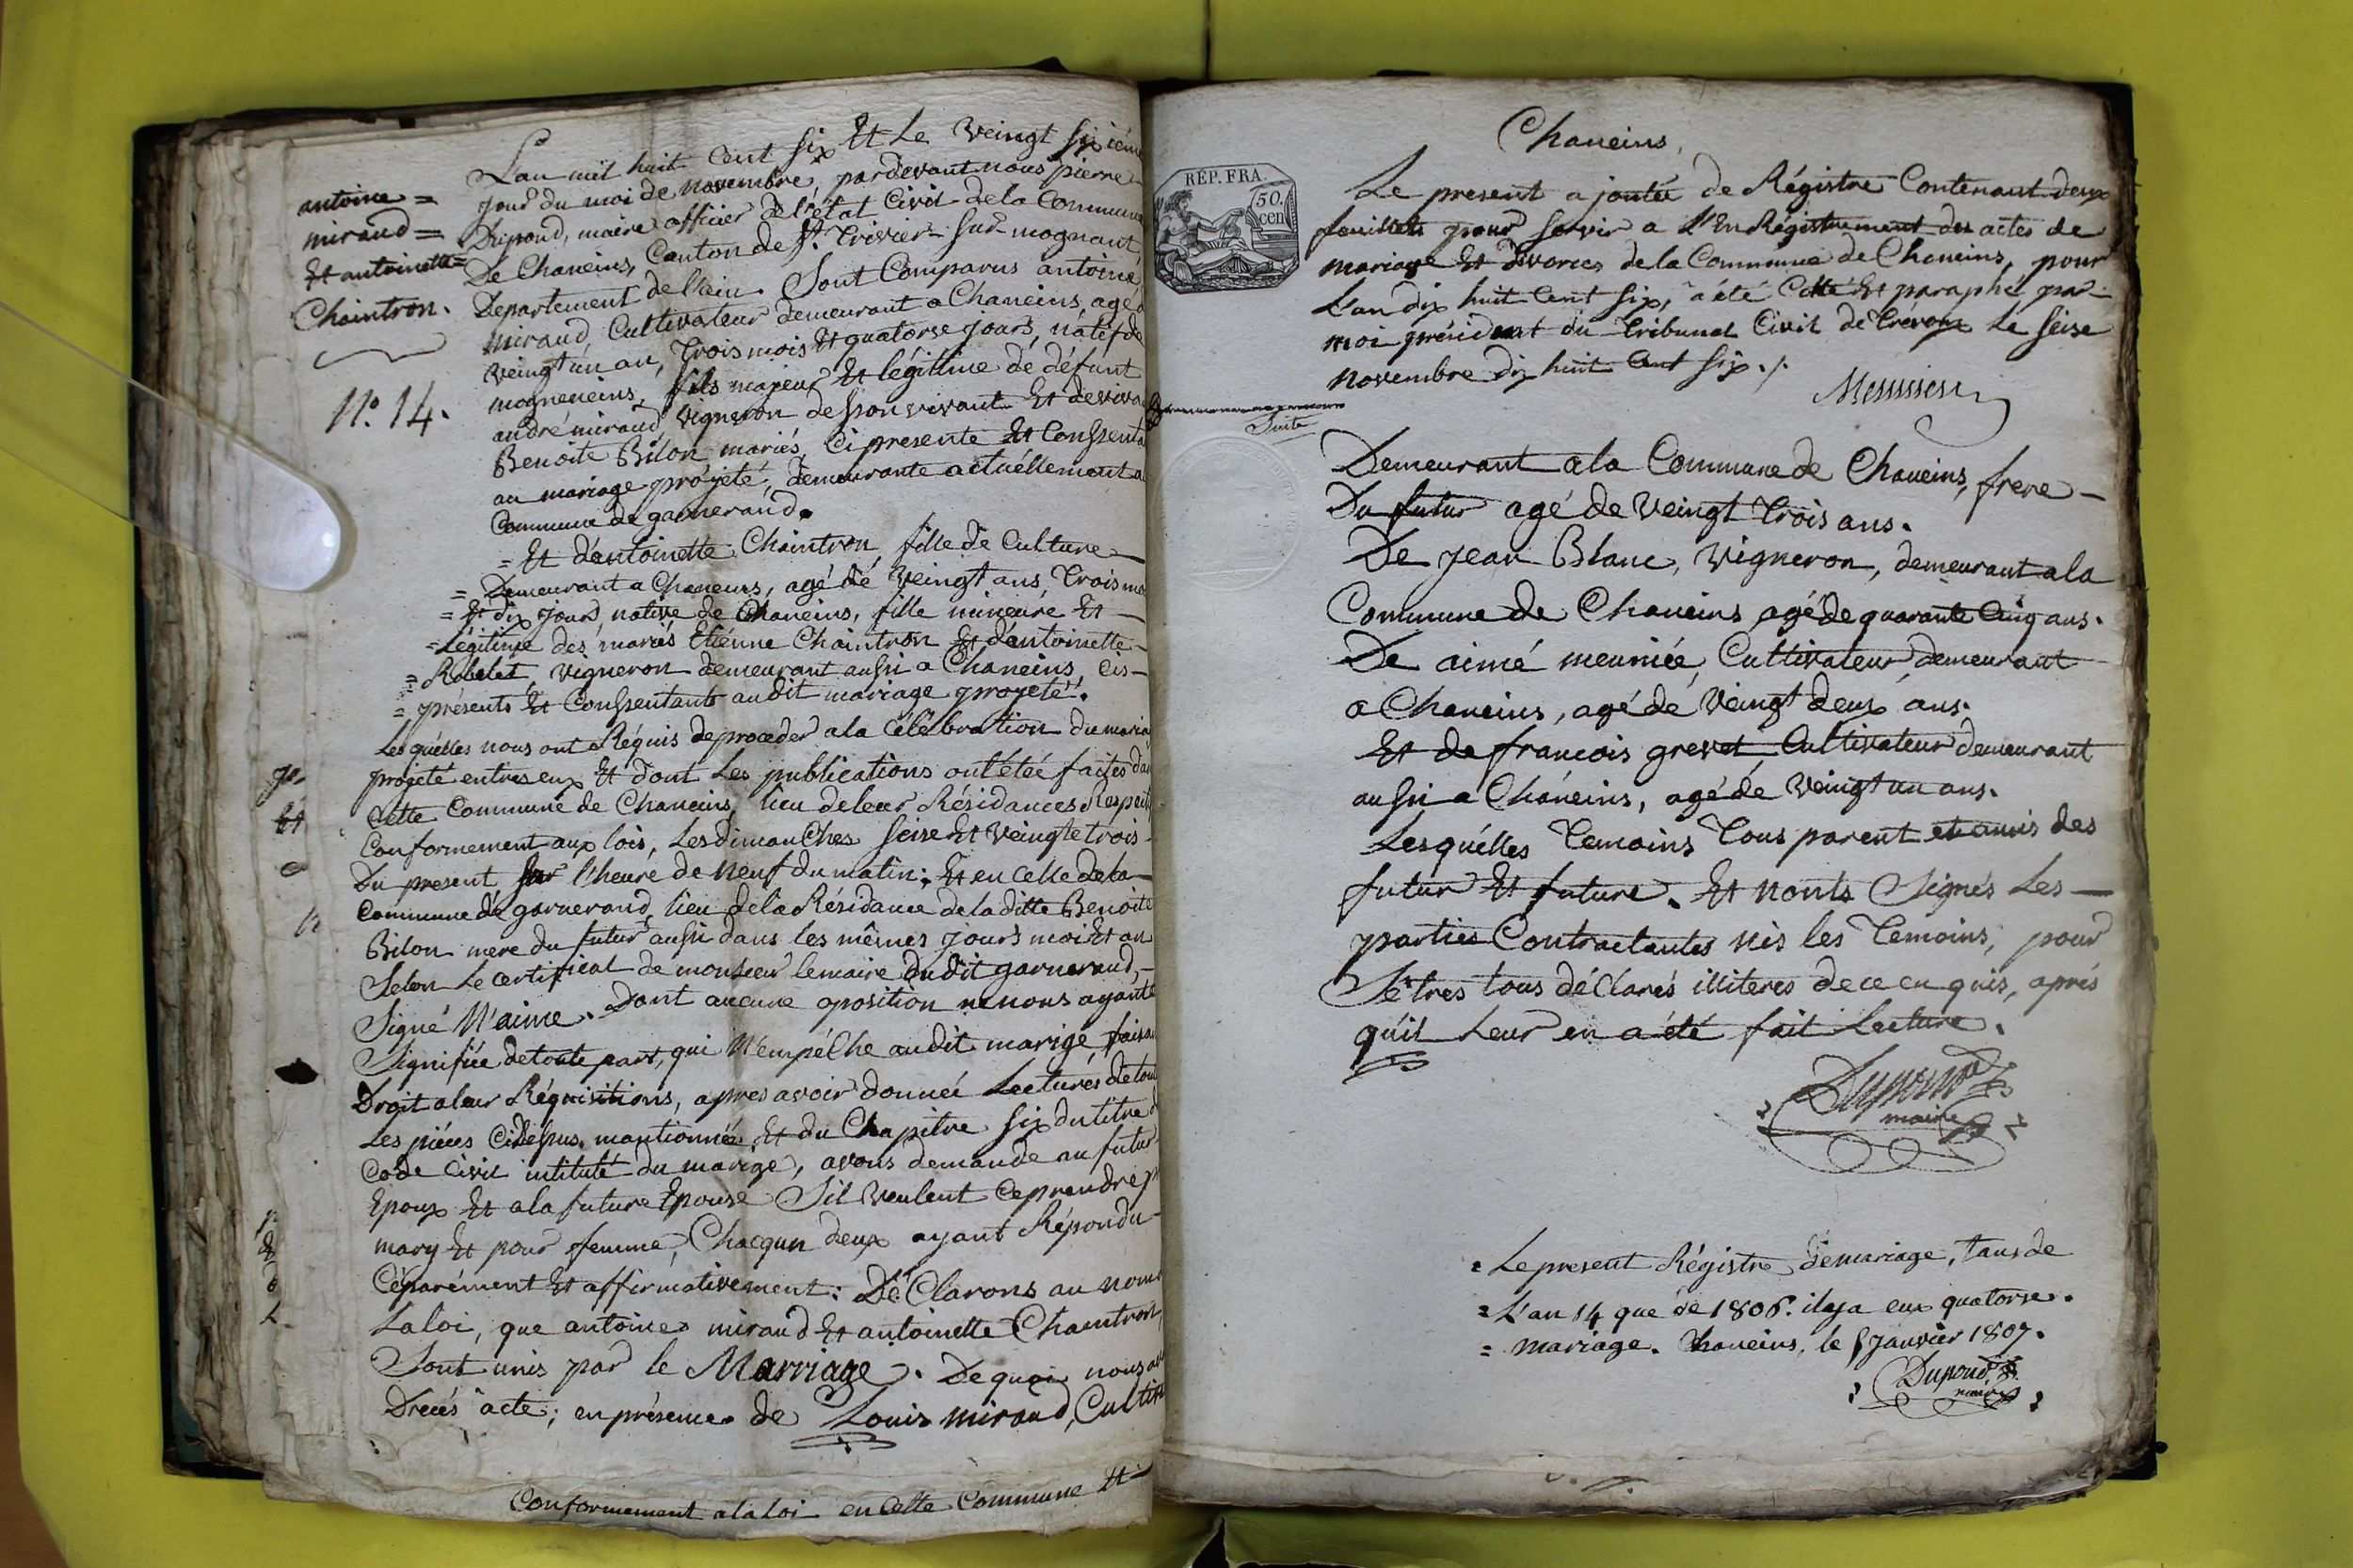 antoine =
miraud =
Et antoinette =
Chaintron.
N.º 14.
L'an mil huit Cent six Et Le veingt sixiéme
jour du moi de novembre, pardevant nous pierre
Dupond, maire officier de l'état Civil de la Commune
De Chaneins, Canton de St. Trivier sur mognant
Departement de l'ain. Sont Comparus antoine
miraud, Cultivateur demeurant a Chaneins, agé
veingt un an, Trois mois Et quatorse jours, natif de
mogneneins, fils majeur Et légitime de défunt
andré miraud, vigneron de sson vivant Et de viva
Benoite Bilon mariés, Ci presente Et Conssenta
au mariage projeté, demeurante actuéllement a
Commune de garnerand.
= Et d'antoinette Chaintron, fille de Culture
= Demeurant a Chaneins, agé de veingt ans Trois mo
= Et dix jours, native de Chaneins, fille mineure Et
= Légitime des mariés Etiénne Chaintron Et d'antoinette
= Robelet, vigneron demeurant aussi a Chaneins, cis-
= présents Et Conssentants audit mariage projeté.
Les quélles nous ont Réquis de proceder a la Célébration du maria
projeté entres eux Et dont Les publications ont étéé faites da
Cette Commune de Chaneins, lieu de leur Résidances Respec
Conformement aux lois, Les dimanches seise Et veingte trois
Du present sur l'heure de neuf du matin; Et en Celle de la
Commune de garnerand, lieu de la Résidance de la ditte Benoite
Bilon mere du futur aussi dans les mêmes jours moi Et an
Selon Le certificat de monsieur le maire dudit garnerand,
Signé N'aime. Dont aucune oposition ne nous ayante
Signifiée de toute part, qui N'empélhe audit marige faisa
Droit a leur Réquisitions, apres avoir donnée Lecturés de tou
Les piéces Cidessus mantionnée Et du Chapitre six du titre
Code Civil intitulé du marige, avons demande au futur
Epoux Et a la future Epouse Sil veulent Ceprendre p
mary Et pour femme, Chacqun deux ayant Répondu
Céparément Et affirmativement: Dé Clarons au nom
La loi, que antoine miraud Et antoinette Chaintron,
Sont unis par le Marriage. De quoi nous av
Dréés acte; en présence de Louis miraud, Cultiv
Conformement a la loi en Cette Commune Et
RÉP. FRA.
50.
cen
Chaneins,
Le present a joutée de Régistre Contenant deux
feuillets pour servir a L'EnRégistrement des actes de
mariage Et divorces de la Commune de Chaneins, pour
L'an dix huit Cent six, a été Cotté Et paraphé par
moi président du Tribunal Civil de Trévoux Le seise
novembre dix huit Cent six./.
Suite
Demeurant a la Commune de Chaneins, frere
Du futur agé de Veingt Trois ans.
De jean Blanc, Vigneron, demeurant a la
Commune de Chaneins agé de quarante Cinq ans.
De aimé meuniée, Cultivateur, demeurant
a Chaneins, agé de Veingt deux ans.
Et de francois grevet, Cultivateur demeurant
aussi a Chaneins, agé de Veingt un ans.
Lesquélles Temoins Tous parent et amis des
futur Et future. Et nonts Signés Les
parties Contractantes nis les Temoins, pour
Sétres tous déClarés illiteres de ce en quis, aprés
quil Leur en a été fait Lecture.
Dupond
maire
= Le present Régistre de mariage, tans de
= L'an 14 que de 1806. il y a eux quatorse
= mariage. Chaneins, le 1 Janvier 1807.
Dupond
maire